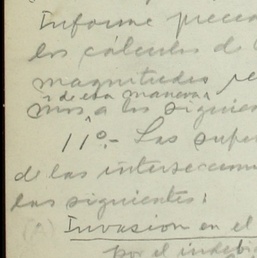 Informe prece
los cálculos de
magnitudes re
de esa manera
mos a los siguien
11º.- Las super
de las interseccion
las siguientes:
Invasion en el
por el indebi